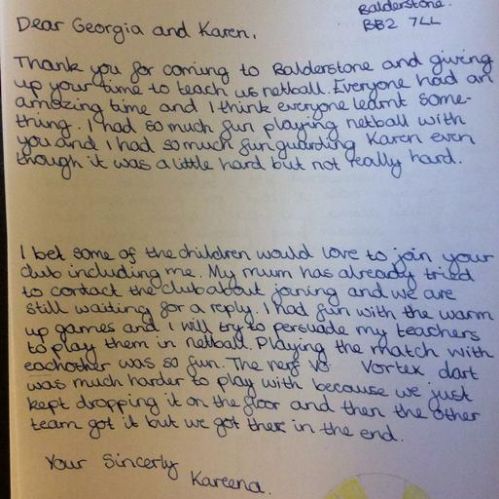 Balderstone.
BB2 7LL
Dear Georgia and Karen,
Thank you for coming to Balderstone and giving
up your time to teach us netball. Everyone had an
amazing time and I think everyone learnt some-
thing. I had so much fun playing netball with
you and I had so much fun guarding Karen even
though it was a little hard but not really hard.
I bet some of the children would love to join your
club including me. My mum has already tried
to contact the club about joining and we are
still waiting for a reply. I had fun with the warm
up games and I will try to persuade my teachers
to play them in netball. Playing the match with
eachother was so fun. The nerf Vortex dart
was much harder to play with because we just
kept dropping it on the floor and then the other
team got it but we got there in the end.
Your Sincerly
Kareena.